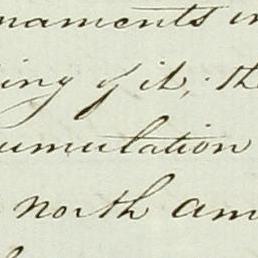 naments in
ing of it, th
umulation
north am